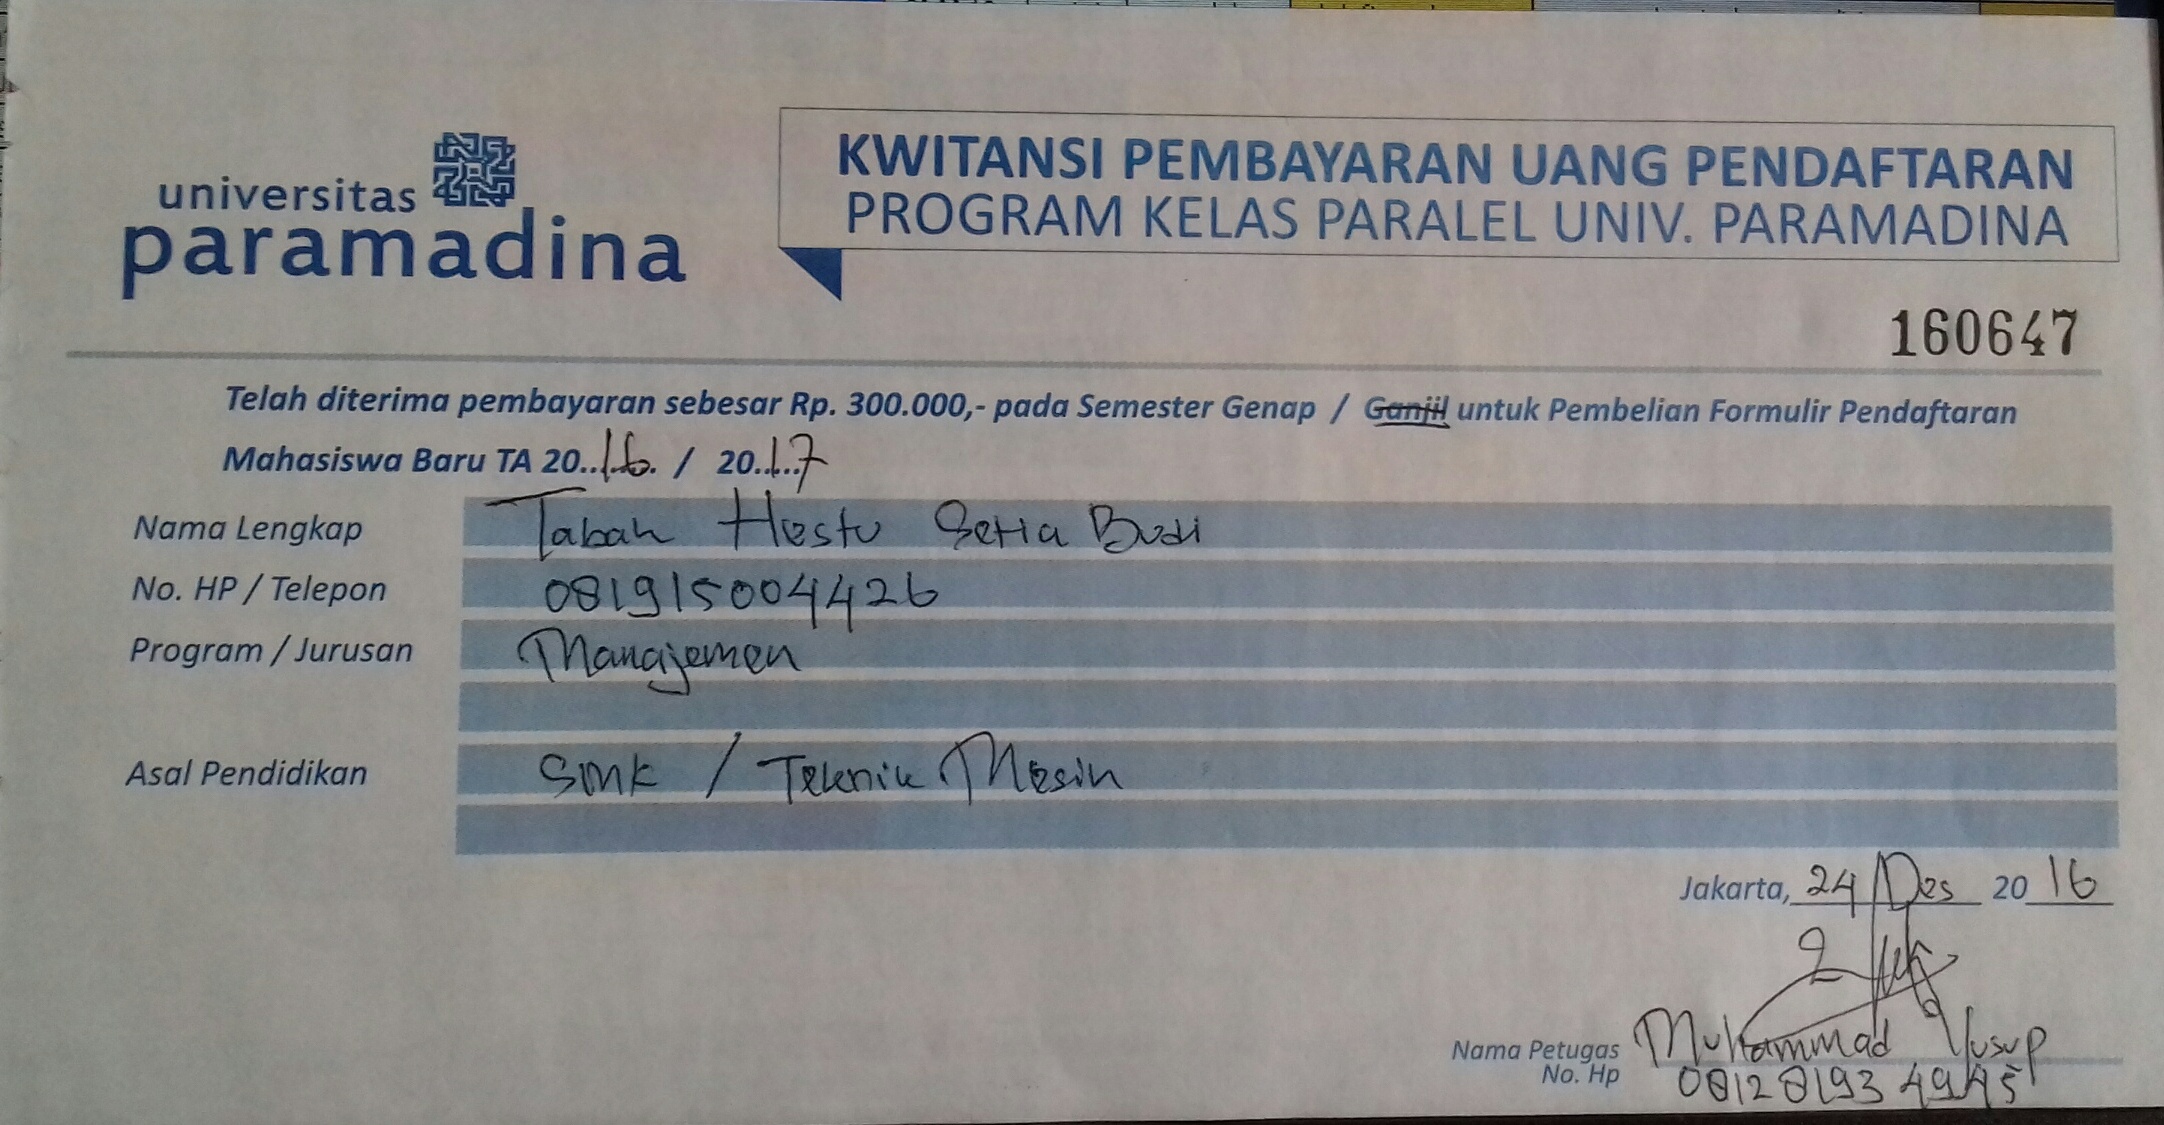 universitas
paramadina
KWITANSI PEMBAYARAN UANG PENDAFTARAN
PROGRAM KELAS PARALEL UNIV. PARAMADINA
160647
Telah diterima pembayaran sebesar Rp. 300.000,- pada Semester Genap / Ganjil untuk Pembelian Formulir Pendaftaran
Mahasiswa Baru TA 20..16. / 20.17
Nama Lengkap Tabah Hestu Setia Budi
No. HP / Telepon 081915004426
Program / Jurusan Manajemen
Asal Pendidikan SMK / Teknik Mesin
Jakarta, 24 Des 2016
Nama Petugas Muhammad Yusup
No. Hp 08128193 4945